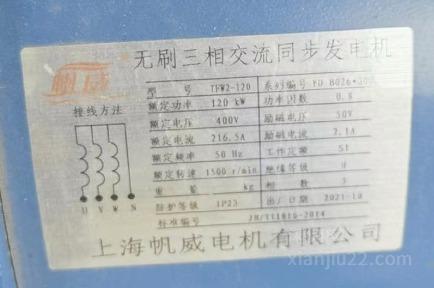 帆威
无刷三相交流同步发电机
接线方法
型 号 TFW2-120 系列编号
额定功率 120 kW 功率因数 0.8
额定电压 400V 励磁电压 50V
额定电流 216.5A 励磁电流 2.1A
额定频率 50 Hz 工作定额 S1
额定转速 1500 r/min 绝缘等级 H
重 量 kg 相 数 3
防护等级 IP23 出厂日期 2021-10
标准编号
U V W N
上海帆威电机有限公司
xianjiu22.com